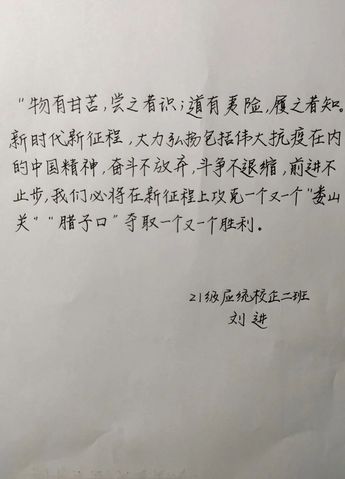 “物有甘苦，尝之者识；道有夷险，履之者知。
新时代新征程，大力弘扬包括伟大抗疫在内
的中国精神，奋斗不放弃，斗争不退缩，前进不
止步，我们必将在新征程上攻克一个又一个“娄山
关”“腊子口”夺取一个又一个胜利。
21级应统校正二班
刘进